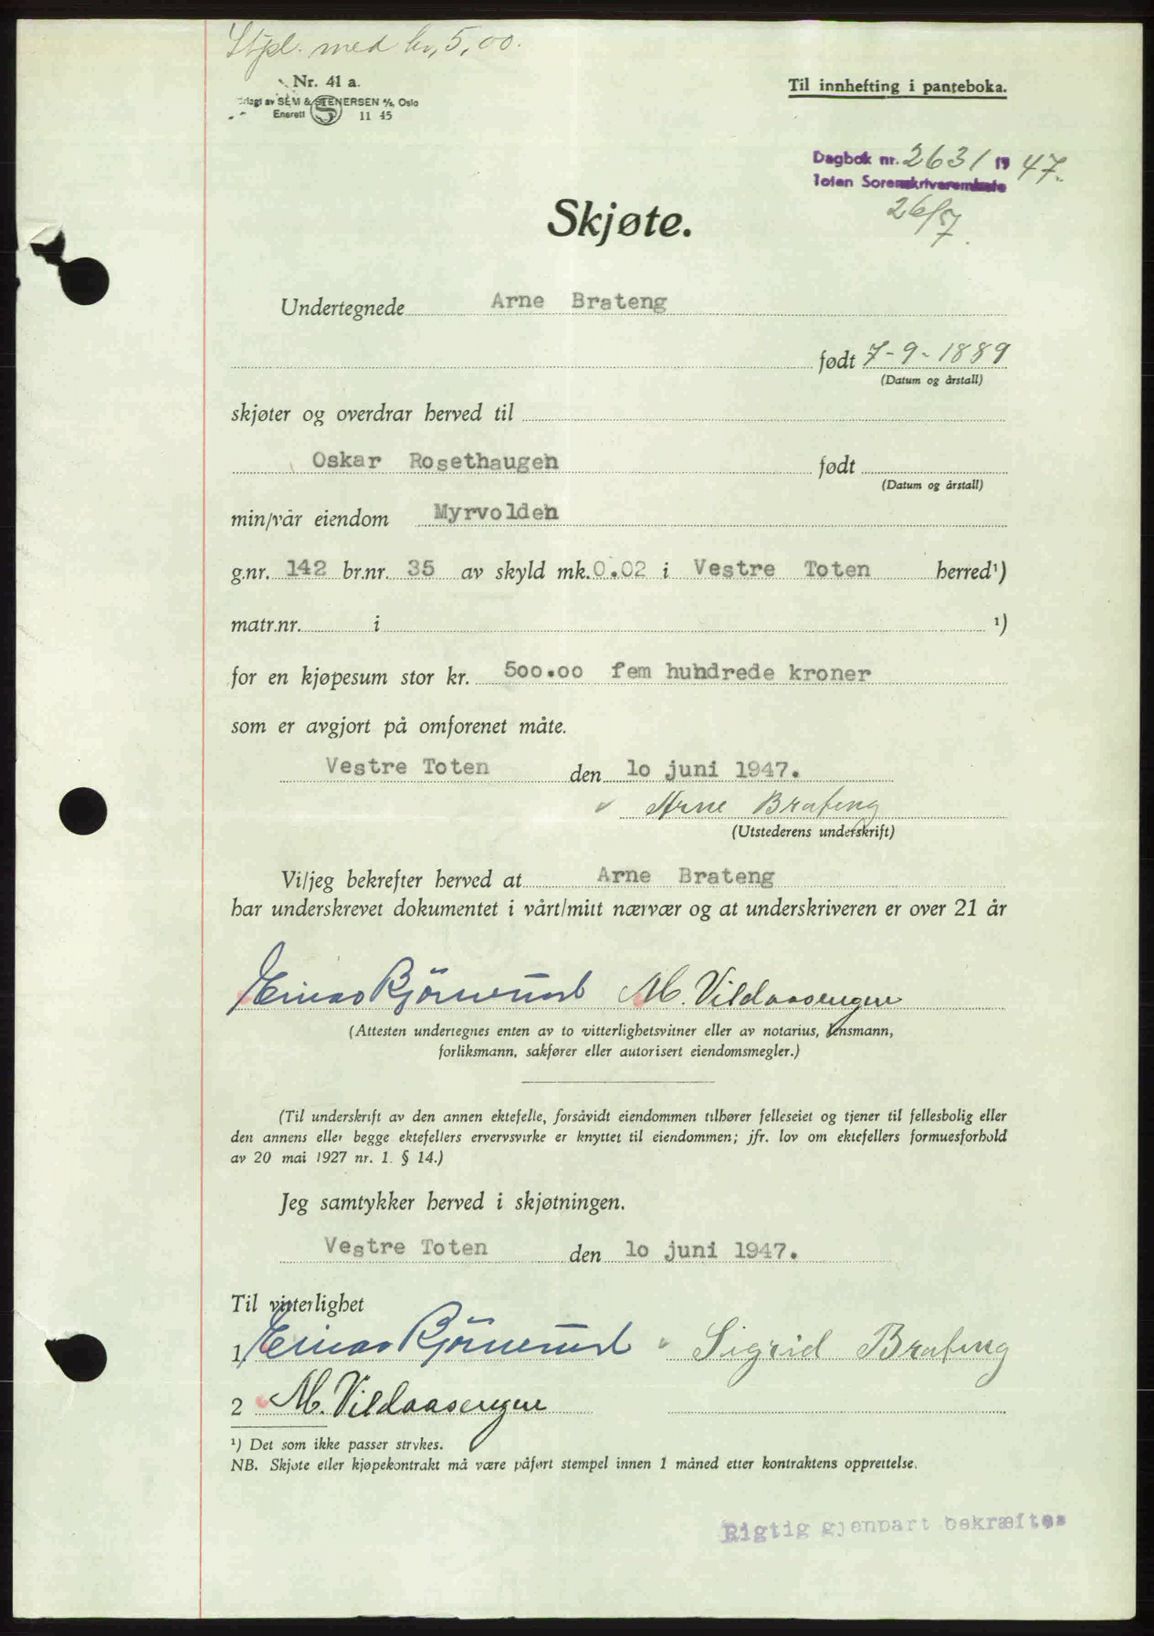 Stpl. med kr. 5,00.
Nr. 41 a.
Til innhefting i panteboka.
av SEM & STENERSEN A/S, Oslo
Enerett S 11 45
Dagbok nr. 2631 19 47.
Toten Sorenskriverembete
26/7.
Skjøte.
Undertegnede Arne Brateng
født 7-9-1889
(Datum og årstall)
skjøter og overdrar herved til
Oskar Rosethaugen født
(Datum og årstall)
min/vår eiendom Myrvolden
g.nr. 142 br.nr. 35 av skyld mk. 0.02 i Vestre Toten herred¹)
matr.nr. i ¹)
for en kjøpesum stor kr. 500.00 fem hundrede kroner
som er avgjort på omforenet måte.
Vestre Toten den 10 juni 1947.
Arne Brateng
(Utstederens underskrift)
Vi/jeg bekrefter herved at Arne Brateng
har underskrevet dokumentet i vårt/mitt nærvær og at underskriveren er over 21 år
Bjørnerud M. Vildaasengen
(Attesten undertegnes enten av to vitterlighetsvitner eller av notarius, lensmann,
forliksmann, sakfører eller autorisert eiendomsmegler.)
(Til underskrift av den annen ektefelle, forsåvidt eiendommen tilhører felleseiet og tjener til fellesbolig eller
den annens eller begge ektefellers ervervsvirke er knyttet til eiendommen; jfr. lov om ektefellers formuesforhold
av 20 mai 1927 nr. 1. § 14.)
Jeg samtykker herved i skjøtningen.
Vestre Toten den 10 juni 1947.
Til vitterlighet
1 Bjørnerud Sigrid Brateng
2 M. Vildaasengen
¹) Det som ikke passer strykes.
NB. Skjøte eller kjøpekontrakt må være påført stempel innen 1 måned etter kontraktens opprettelse.
Rigtig gjenpart bekræftes